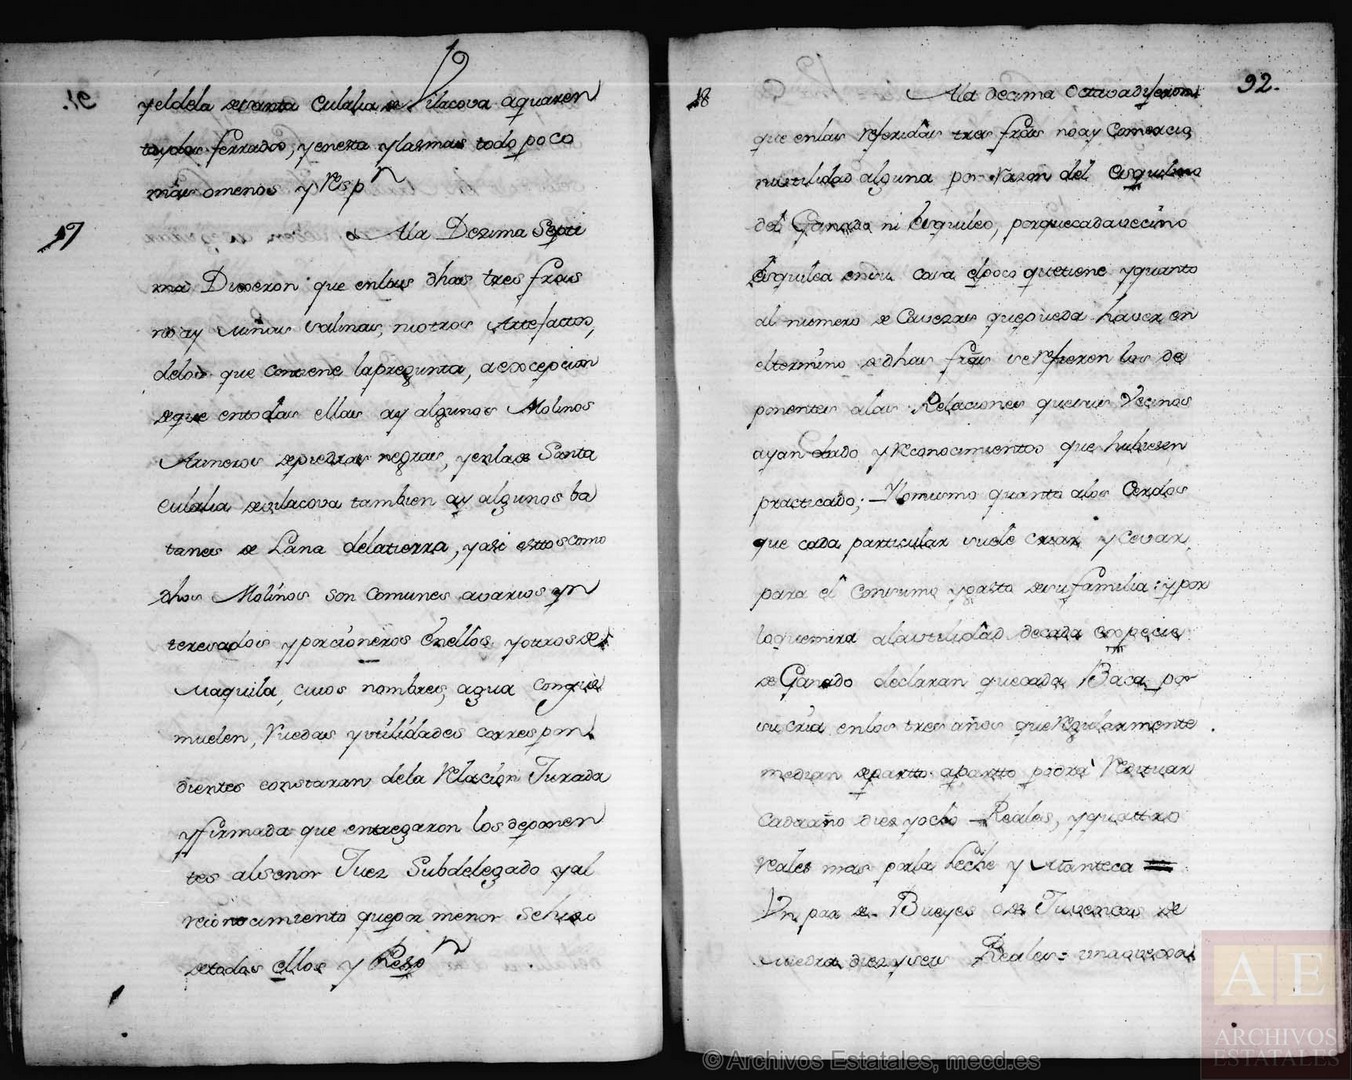 y el dela de santa Eulalia de Vilacova a quaren
taydos ferrados, y en esta y las mas todo poco
mâs omenos y Resp.n
17
A la Dezima Septi
ma Dixeron que enlas dhas tres fras
no ay Minas Salinas, ni otros Artefactos,
delos que contiene la pregunta, a excepcion
de que entodas ellas ay algunos Molinos
Arineros de piedras negras, y enla de Santa
Eulalia de Vilacova tambien ay algunos ba
tanes de Lana dela tierra, y asi estos como
dhos Molinos son comunes avarios yn
teresados y porcioneros en ellos, y otros de
Maquila, cuios nombres, agua con que
muelen, Ruedas y utilidades correspon
dientes constaran dela Relacion Jurada
y firmada que entregaron los deponen
tes al señor Juez Subdelegado y al
reconocimiento que por menor se hizo
de todos ellos y Resp.n
92.
18
A la decima Octava dijeron
que enlas referidas tres fras no ay Comercio
ni utilidad alguna por razon del esquilmo
del Ganado ni Esquileo, porque cada vecino
Esquilea en su casa el poco que tiene y quanto
al numero de Cavezas que pueda haver en
el termino de dhas fras se refieren los de
ponentes a las Relaciones que sus Vecinos
ayan dado y reconocimientos que hubiesen
practicado; Y lo mismo quanto alos Cerdos
que cada particular suele criar y cevar
para el consumo y gasto de su familia: y por
lo que mira a la utilidad de cada especie
de Ganado declaran que cada Baca por
su cria enlos tres años que Regularmente
median de partto a partto podrá Redituar
cada año diez y ocho Reales, y quattro
reales mas por la Leche y Manteca =
Un par de Bueyes o de Tusencos de
diez y seis Reales = una que
© Archivos Estatales, mecd.es
AE
ARCHIVOS
ESTATALES